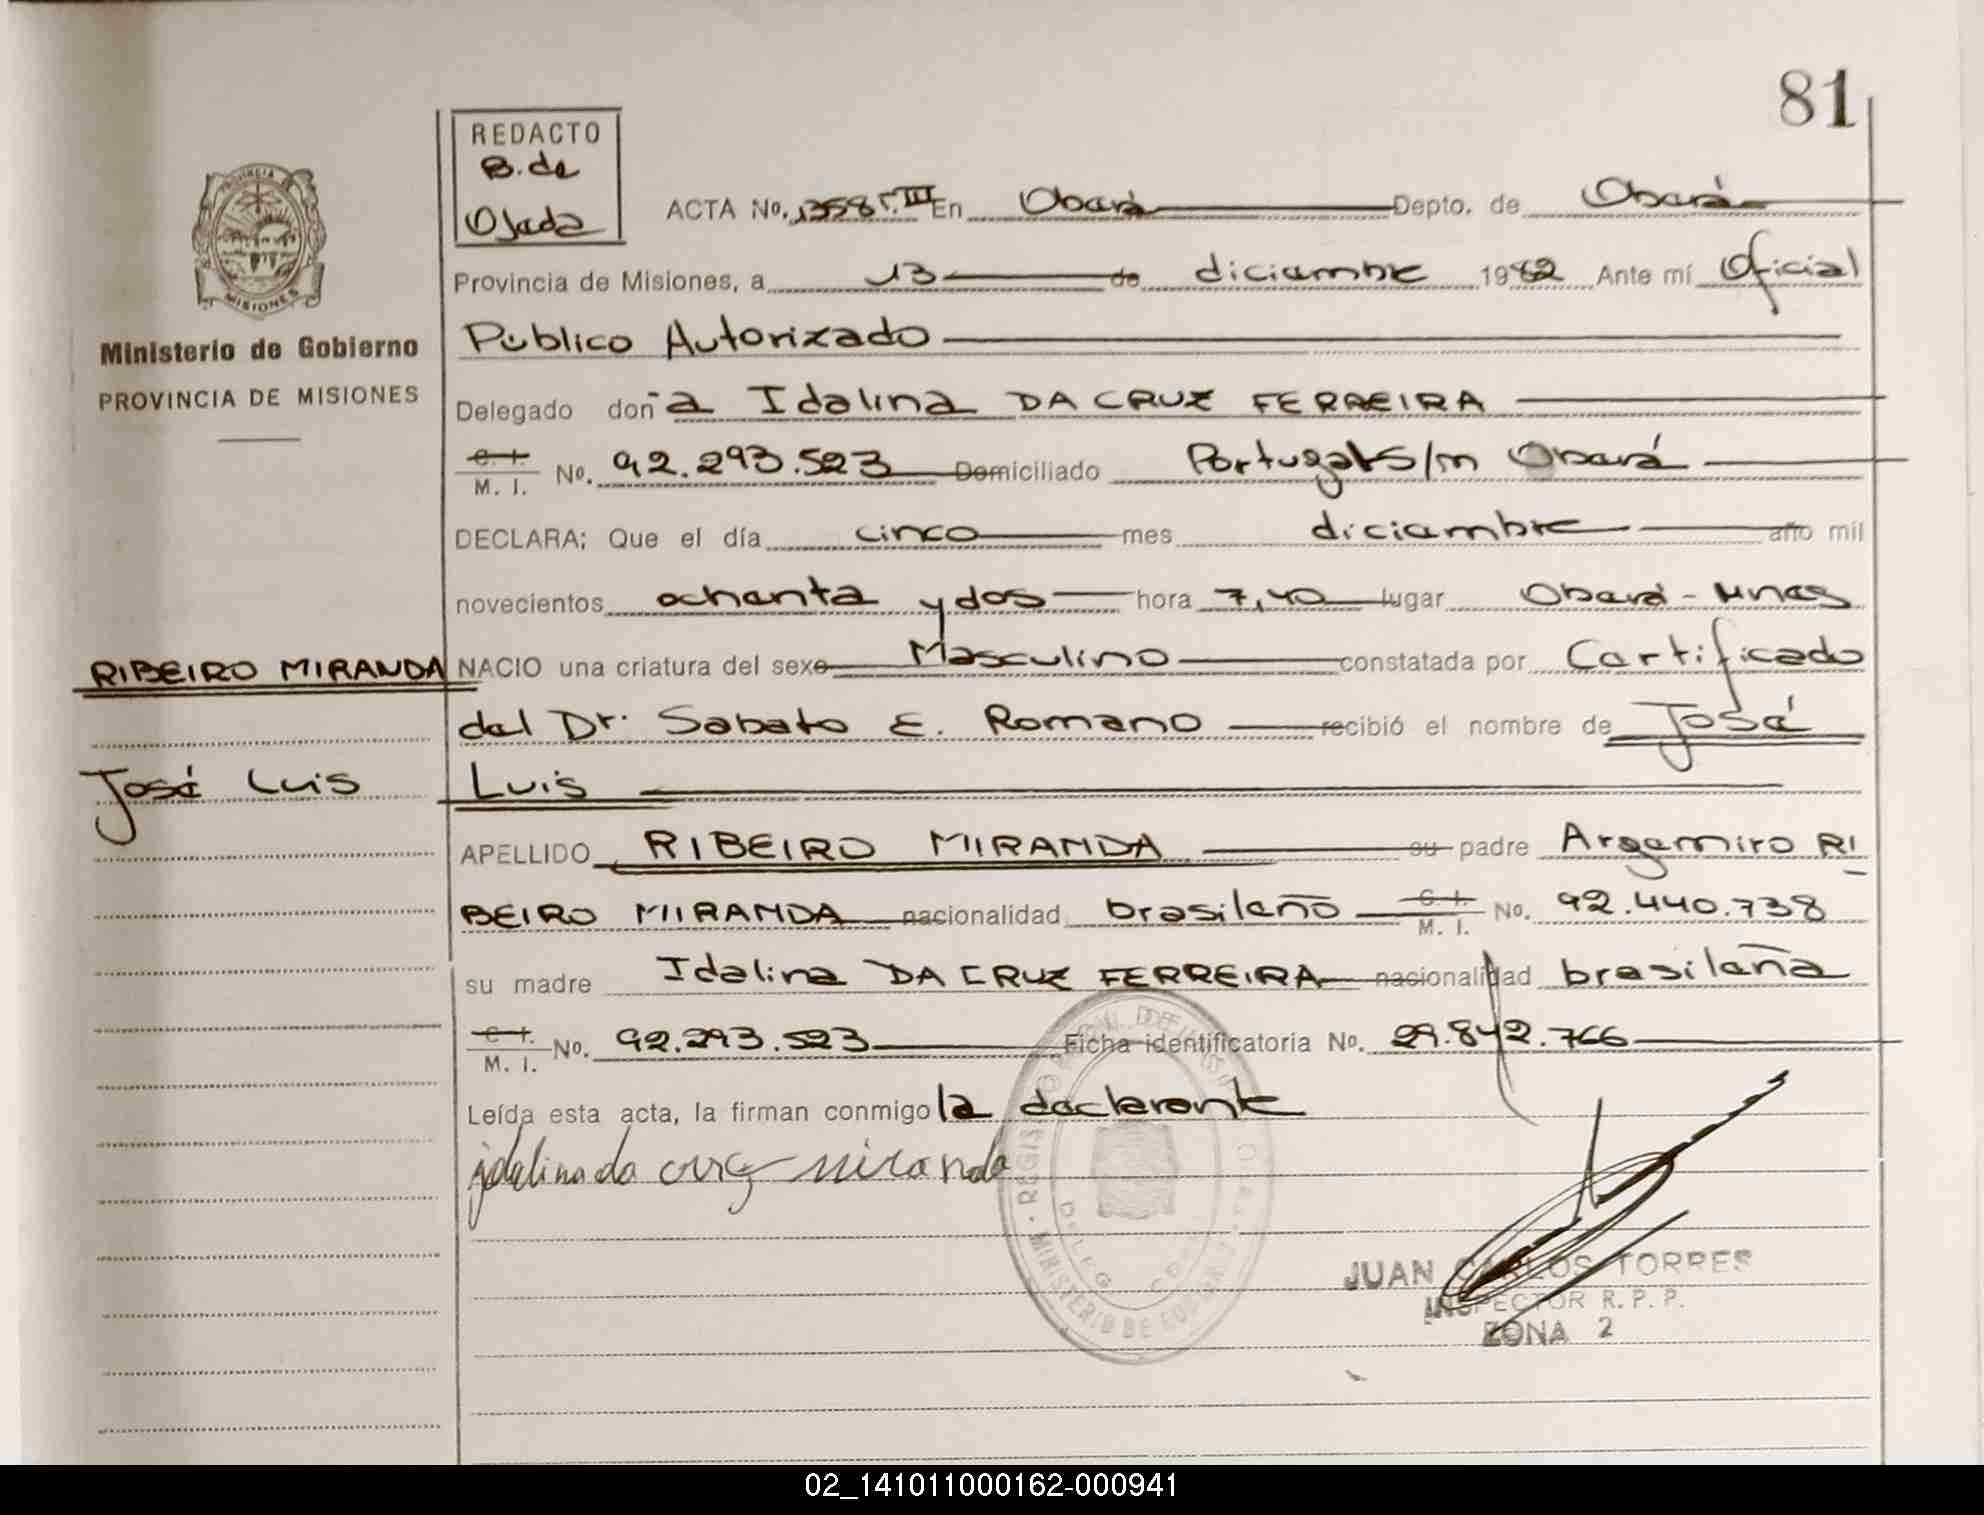 81
REDACTO
B. de
Ojeda
ACTA No. 1358 T. III En Oberá Depto. de Oberá
Provincia de Misiones, a 13 de diciembre 1982 Ante mí Oficial
Público Autorizado
Ministerio de Gobierno
PROVINCIA DE MISIONES
Delegado doña Idalina DA CRUZ FERREIRA
C. I. / M. I. No. 92.293.523 Domiciliado Portugal S/m Oberá
DECLARA; Que el día cinco mes diciembre año mil
novecientos ochenta y dos hora 7,40 lugar Oberá - Mnes
RIBEIRO MIRANDA
NACIO una criatura del sexo Masculino constatada por Certificado
del Dr. Sabato E. Romano recibió el nombre de José
José Luis
Luis
APELLIDO RIBEIRO MIRANDA su padre Argemiro RI
BEIRO MIIRANDA nacionalidad brasileño C. I. / M. I. No. 92.440.738
su madre Idalina DA CRUZ FERREIRA nacionalidad brasileña
C. I. / M. I. No. 92.293.523 Ficha identificatoria No. 29.842.766
Leída esta acta, la firman conmigo la declarante
idalina da cruz miranda
MISIONES
MINISTERIO DE
JUAN CARLOS TORRES
INSPECTOR R. P. P.
ZONA 2
02_141011000162-000941